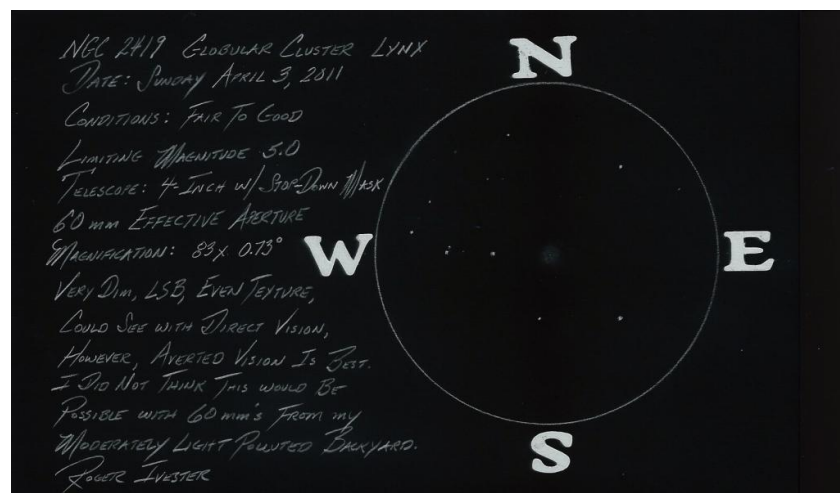 NGC 2419 GLOBULAR CLUSTER LYNX
DATE: SUNDAY APRIL 3, 2011
CONDITIONS: FAIR TO GOOD
LIMITING MAGNITUDE 5.0
TELESCOPE: 4-INCH W/ STOP-DOWN MASK
60 mm EFFECTIVE APERTURE
MAGNIFICATION: 83X 0.73°
VERY DIM, LSB, EVEN TEXTURE,
COULD SEE WITH DIRECT VISION,
HOWEVER, AVERTED VISION IS BEST.
I DID NOT THINK THIS WOULD BE
POSSIBLE WITH 60 mm's FROM my
MODERATELY LIGHT POLLUTED BACKYARD.
ROGER IVESTER
N
W
E
S